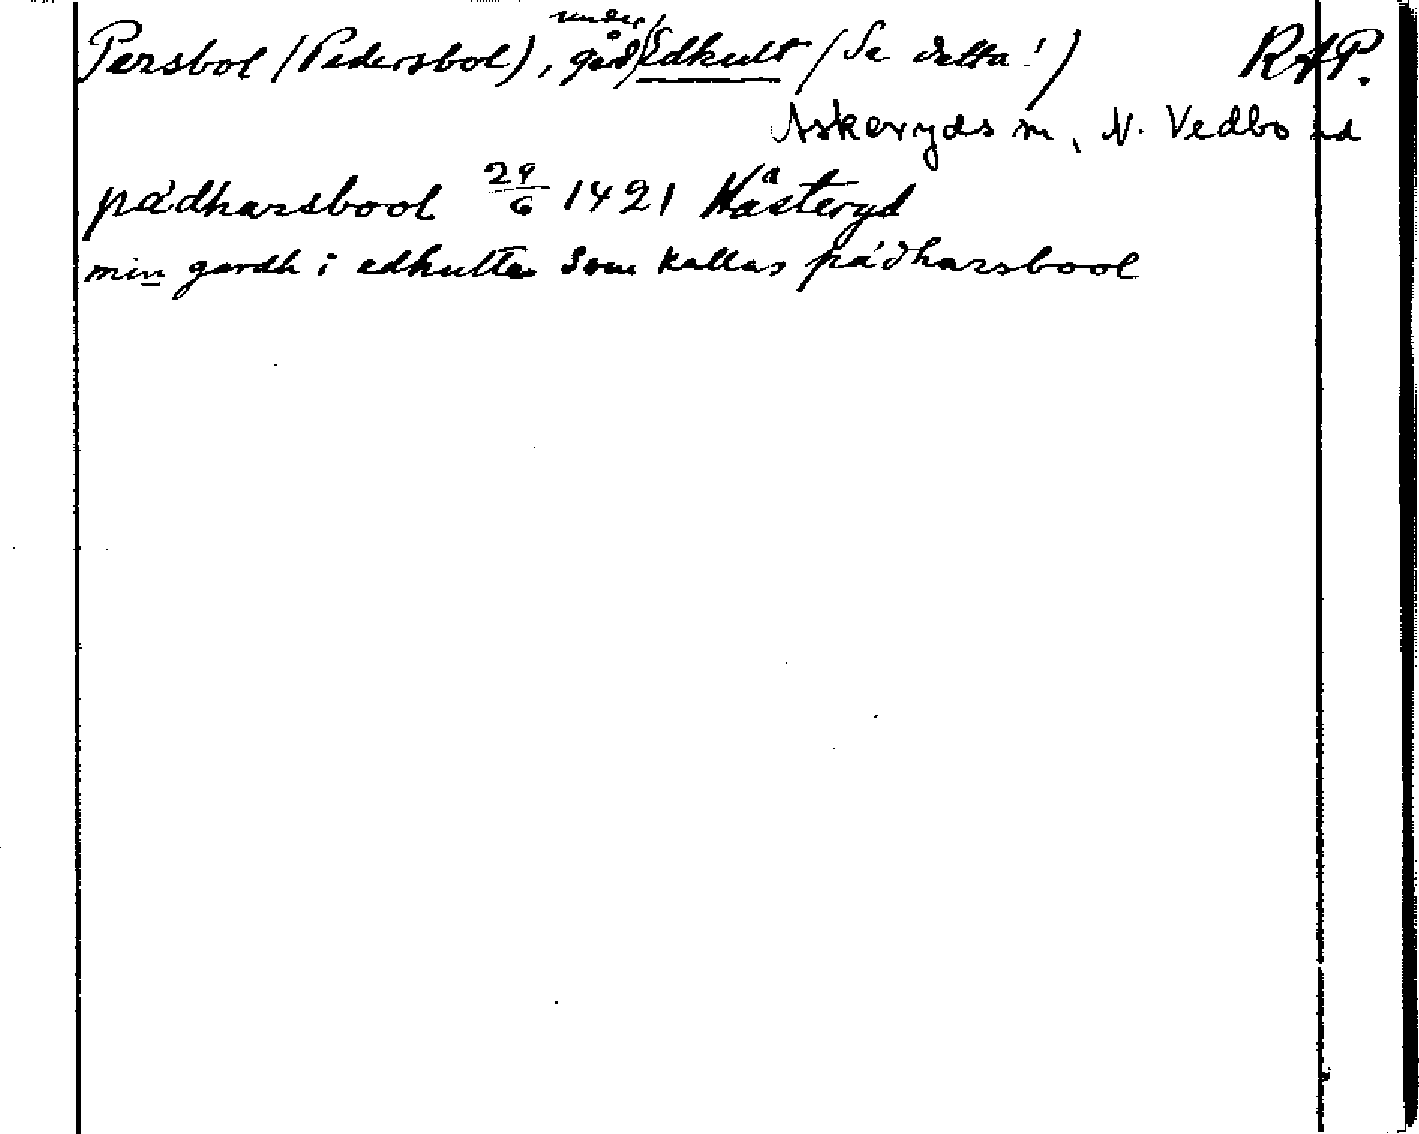 Persbol (Pedersbol), gård under Edkult (Se detta!) RAP.
Askeryds sn, N. Vedbo hd
pädharsbool 29/6 1421 Kåsteryd
min gardh i edkulta som kallas pädharsbool